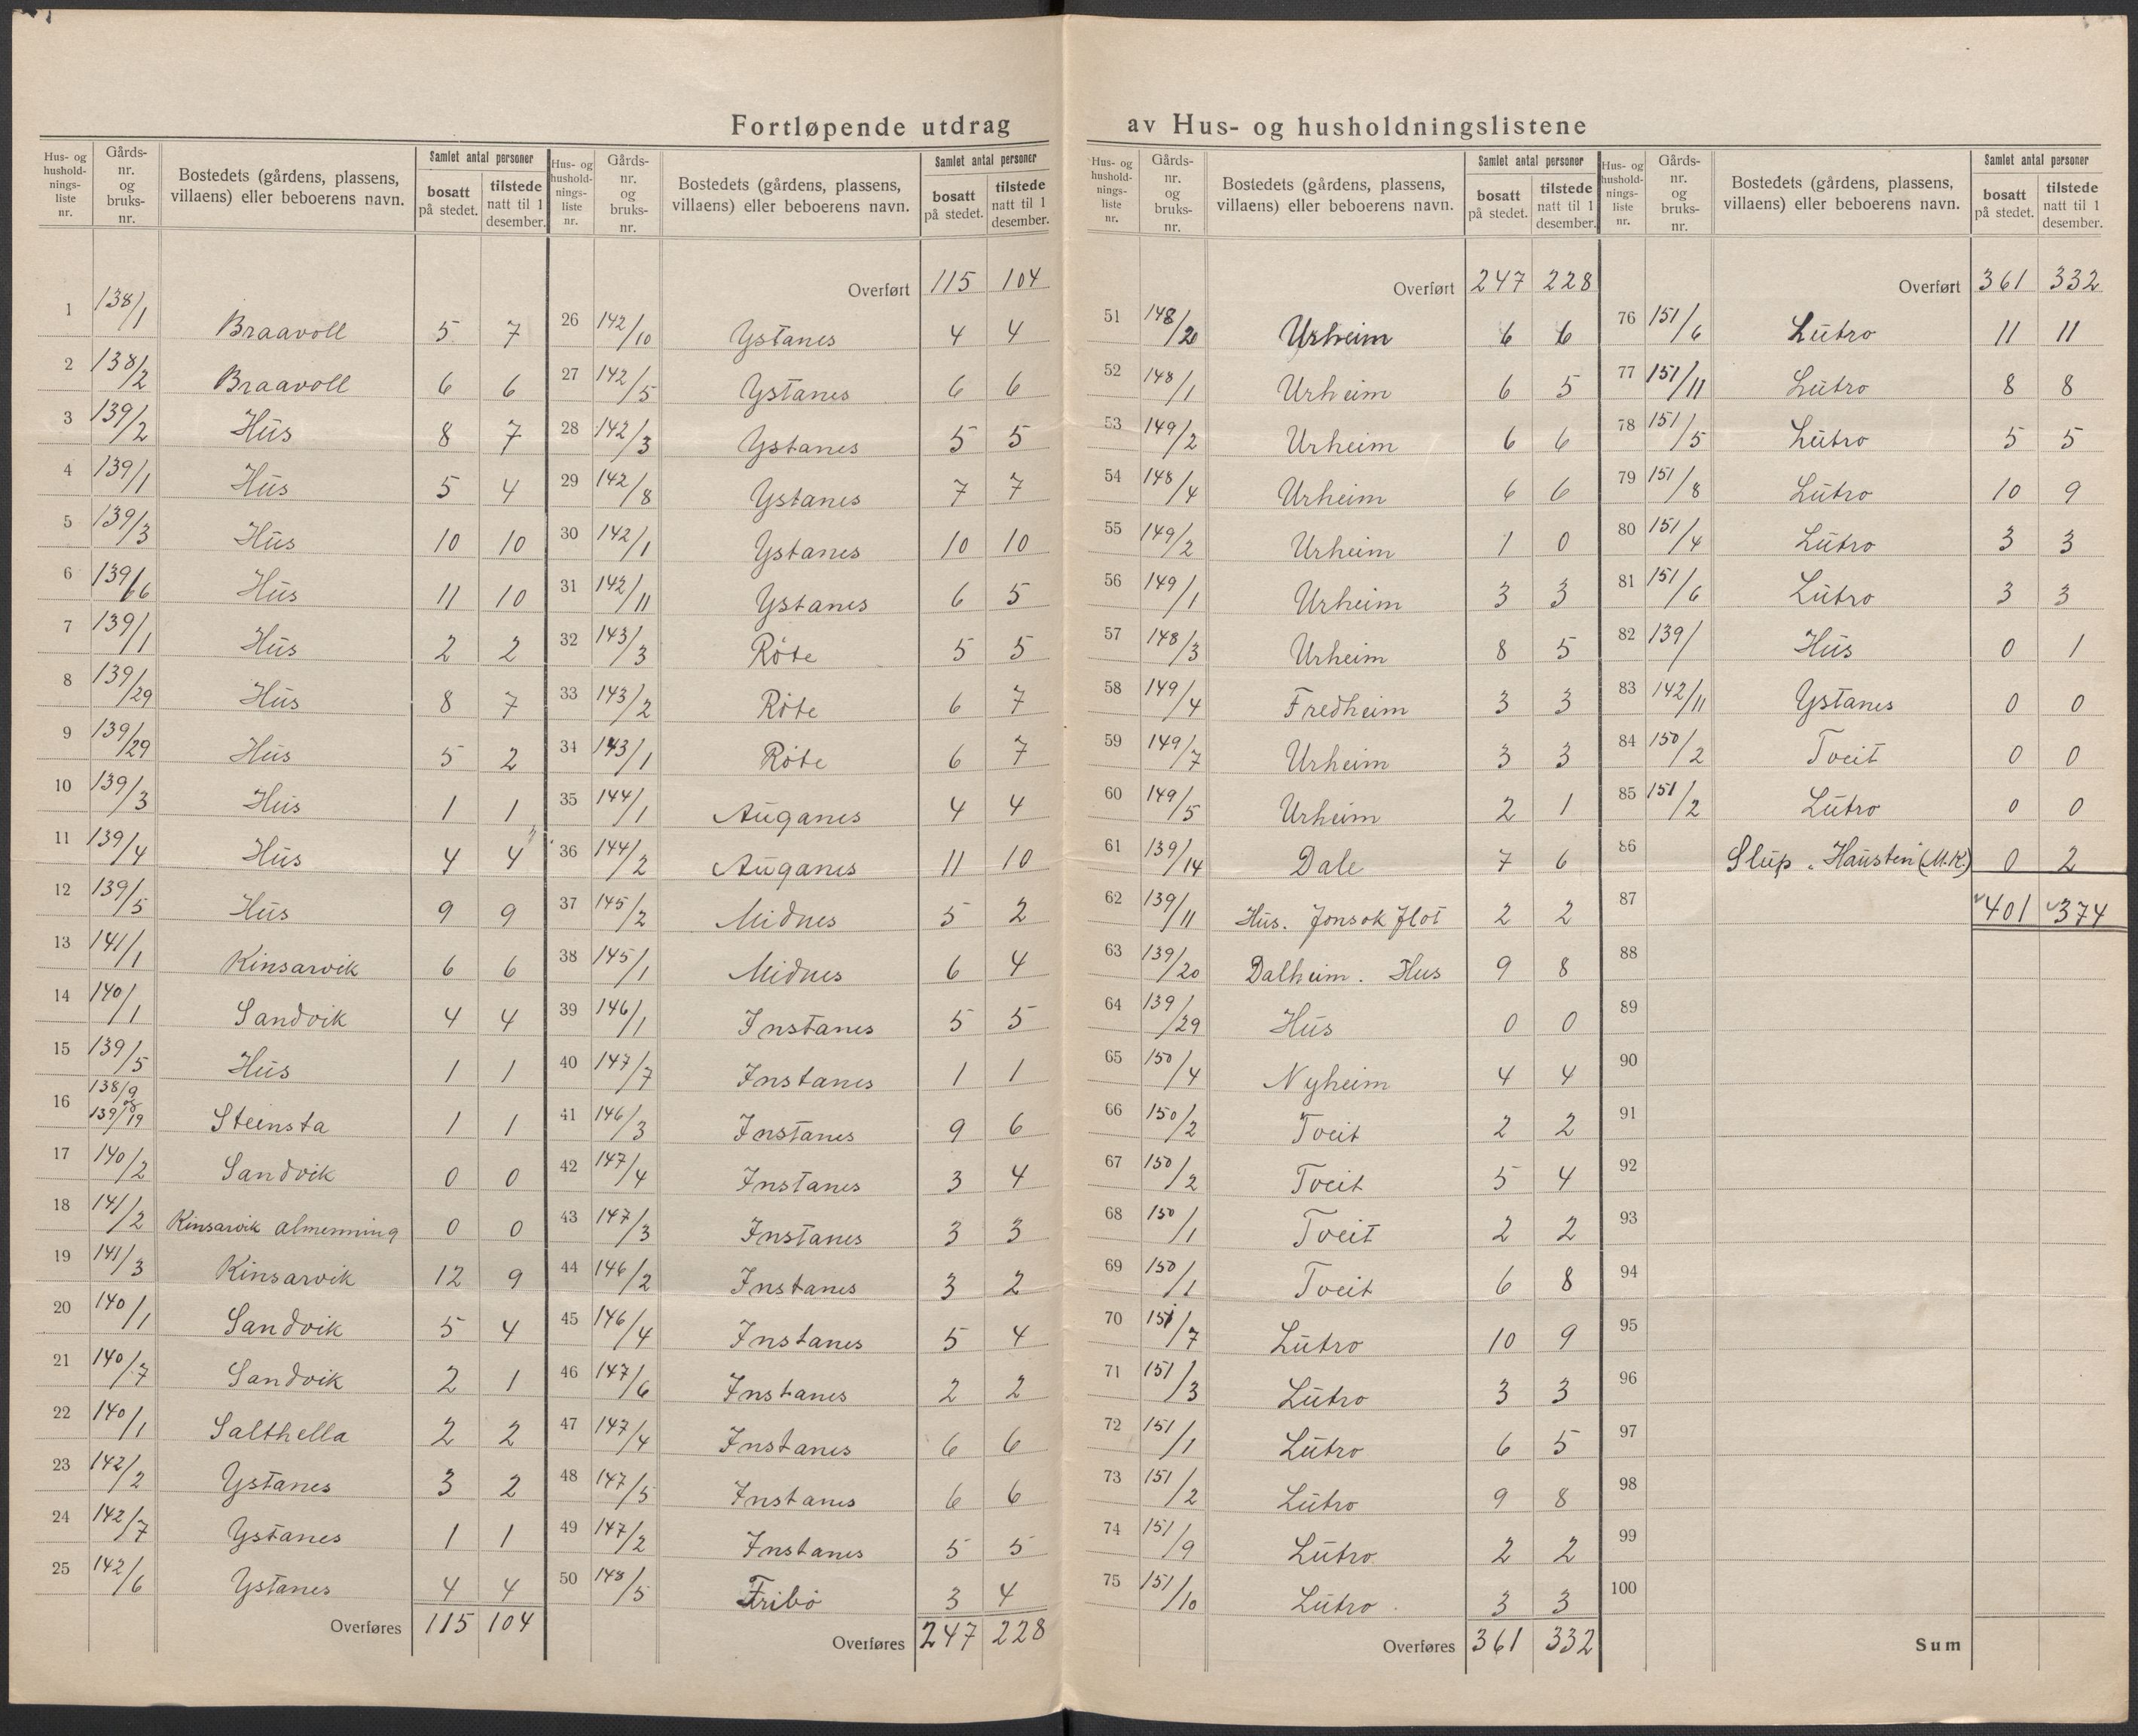 Fortløpende utdrag av Hus- og husholdningslistene
Hus- og hushold-nings-liste nr. | Gårds-nr. og bruks-nr. | Bostedets (gårdens, plassens, villaens) eller beboerens navn. | Samlet antal personer | bosatt på stedet. | tilstede natt til 1 desember.
1 138/1 Braavoll 5 7
2 138/2 Braavoll 6 6
3 139/2 Hus 8 7
4 139/1 Hus 5 4
5 139/3 Hus 10 10
6 139/66 Hus 11 10
7 139/1 Hus 2 2
8 139/29 Hus 8 7
9 139/29 Hus 5 2
10 139/3 Hus 1 1
11 139/4 Hus 4 4
12 139/5 Hus 9 9
13 141/1 Kinsarvik 6 6
14 140/1 Sandvik 4 4
15 139/5 Hus 1 1
16 138/9 og 139/19 Steinsta 1 1
17 140/2 Sandvik 0 0
18 141/2 Kinsarvik almenning 0 0
19 141/3 Kinsarvik 12 9
20 140/1 Sandvik 5 4
21 140/7 Sandvik 2 1
22 140/1 Salthella 2 2
23 142/2 Ystanes 3 2
24 142/7 Ystanes 1 1
25 142/6 Ystanes 4 4
Overføres 115 104
Hus- og hushold-nings-liste nr. | Gårds-nr. og bruks-nr. | Bostedets (gårdens, plassens, villaens) eller beboerens navn. | Samlet antal personer | bosatt på stedet. | tilstede natt til 1 desember.
Overført 115 104
26 142/10 Ystanes 4 4
27 142/5 Ystanes 6 6
28 142/3 Ystanes 5 5
29 142/8 Ystanes 7 7
30 142/1 Ystanes 10 10
31 142/11 Ystanes 6 5
32 143/3 Röte 5 5
33 143/2 Röte 6 7
34 143/1 Röte 6 7
35 144/1 Auganes 4 4
36 144/2 Auganes 11 10
37 145/2 Midnes 5 2
38 145/1 Midnes 6 4
39 146/1 Instanes 5 5
40 147/7 Instanes 1 1
41 146/3 Instanes 9 6
42 147/4 Instanes 3 4
43 147/3 Instanes 3 3
44 146/2 Instanes 3 2
45 146/4 Instanes 5 4
46 147/6 Instanes 2 2
47 147/4 Instanes 6 6
48 147/5 Instanes 6 6
49 147/2 Instanes 5 5
50 148/5 Fribo 3 4
Overføres 247 228
Hus- og hushold-nings-liste nr. | Gårds-nr. og bruks-nr. | Bostedets (gårdens, plassens, villaens) eller beboerens navn. | Samlet antal personer | bosatt på stedet. | tilstede natt til 1 desember.
Overført 247 228
51 148/20 Urheim 6 6
52 148/1 Urheim 6 5
53 149/2 Urheim 6 6
54 148/4 Urheim 6 6
55 149/2 Urheim 1 0
56 149/1 Urheim 3 3
57 148/3 Urheim 8 5
58 149/4 Fredheim 3 3
59 149/7 Urheim 3 3
60 149/5 Urheim 2 1
61 139/14 Dale 7 6
62 139/11 Hus. Jonsokflot 2 2
63 139/20 Dalheim. Hus 9 8
64 139/29 Hus 0 0
65 150/4 Nyheim 4 4
66 150/2 Tveit 2 2
67 150/2 Tveit 5 4
68 150/1 Tveit 2 2
69 150/1 Tveit 6 8
70 151/7 Lutro 10 9
71 151/3 Lutro 3 3
72 151/1 Lutro 6 5
73 151/2 Lutro 9 8
74 151/9 Lutro 2 2
75 151/10 Lutro 3 3
Overføres 361 332
Hus- og hushold-nings-liste nr. | Gårds-nr. og bruks-nr. | Bostedets (gårdens, plassens, villaens) eller beboerens navn. | Samlet antal personer | bosatt på stedet. | tilstede natt til 1 desember.
Overført 361 332
76 151/6 Lutro 11 11
77 151/11 Lutro 8 8
78 151/5 Lutro 5 5
79 151/8 Lutro 10 9
80 151/4 Lutro 3 3
81 151/6 Lutro 3 3
82 139/ Hus 0 1
83 142/11 Ystanes 0 0
84 150/2 Tveit 0 0
85 151/2 Lutro 0 0
86 Slup "Hausten" (M.K.) 0 2
87 401 374
88
89
90
91
92
93
94
95
96
97
98
99
100
Sum